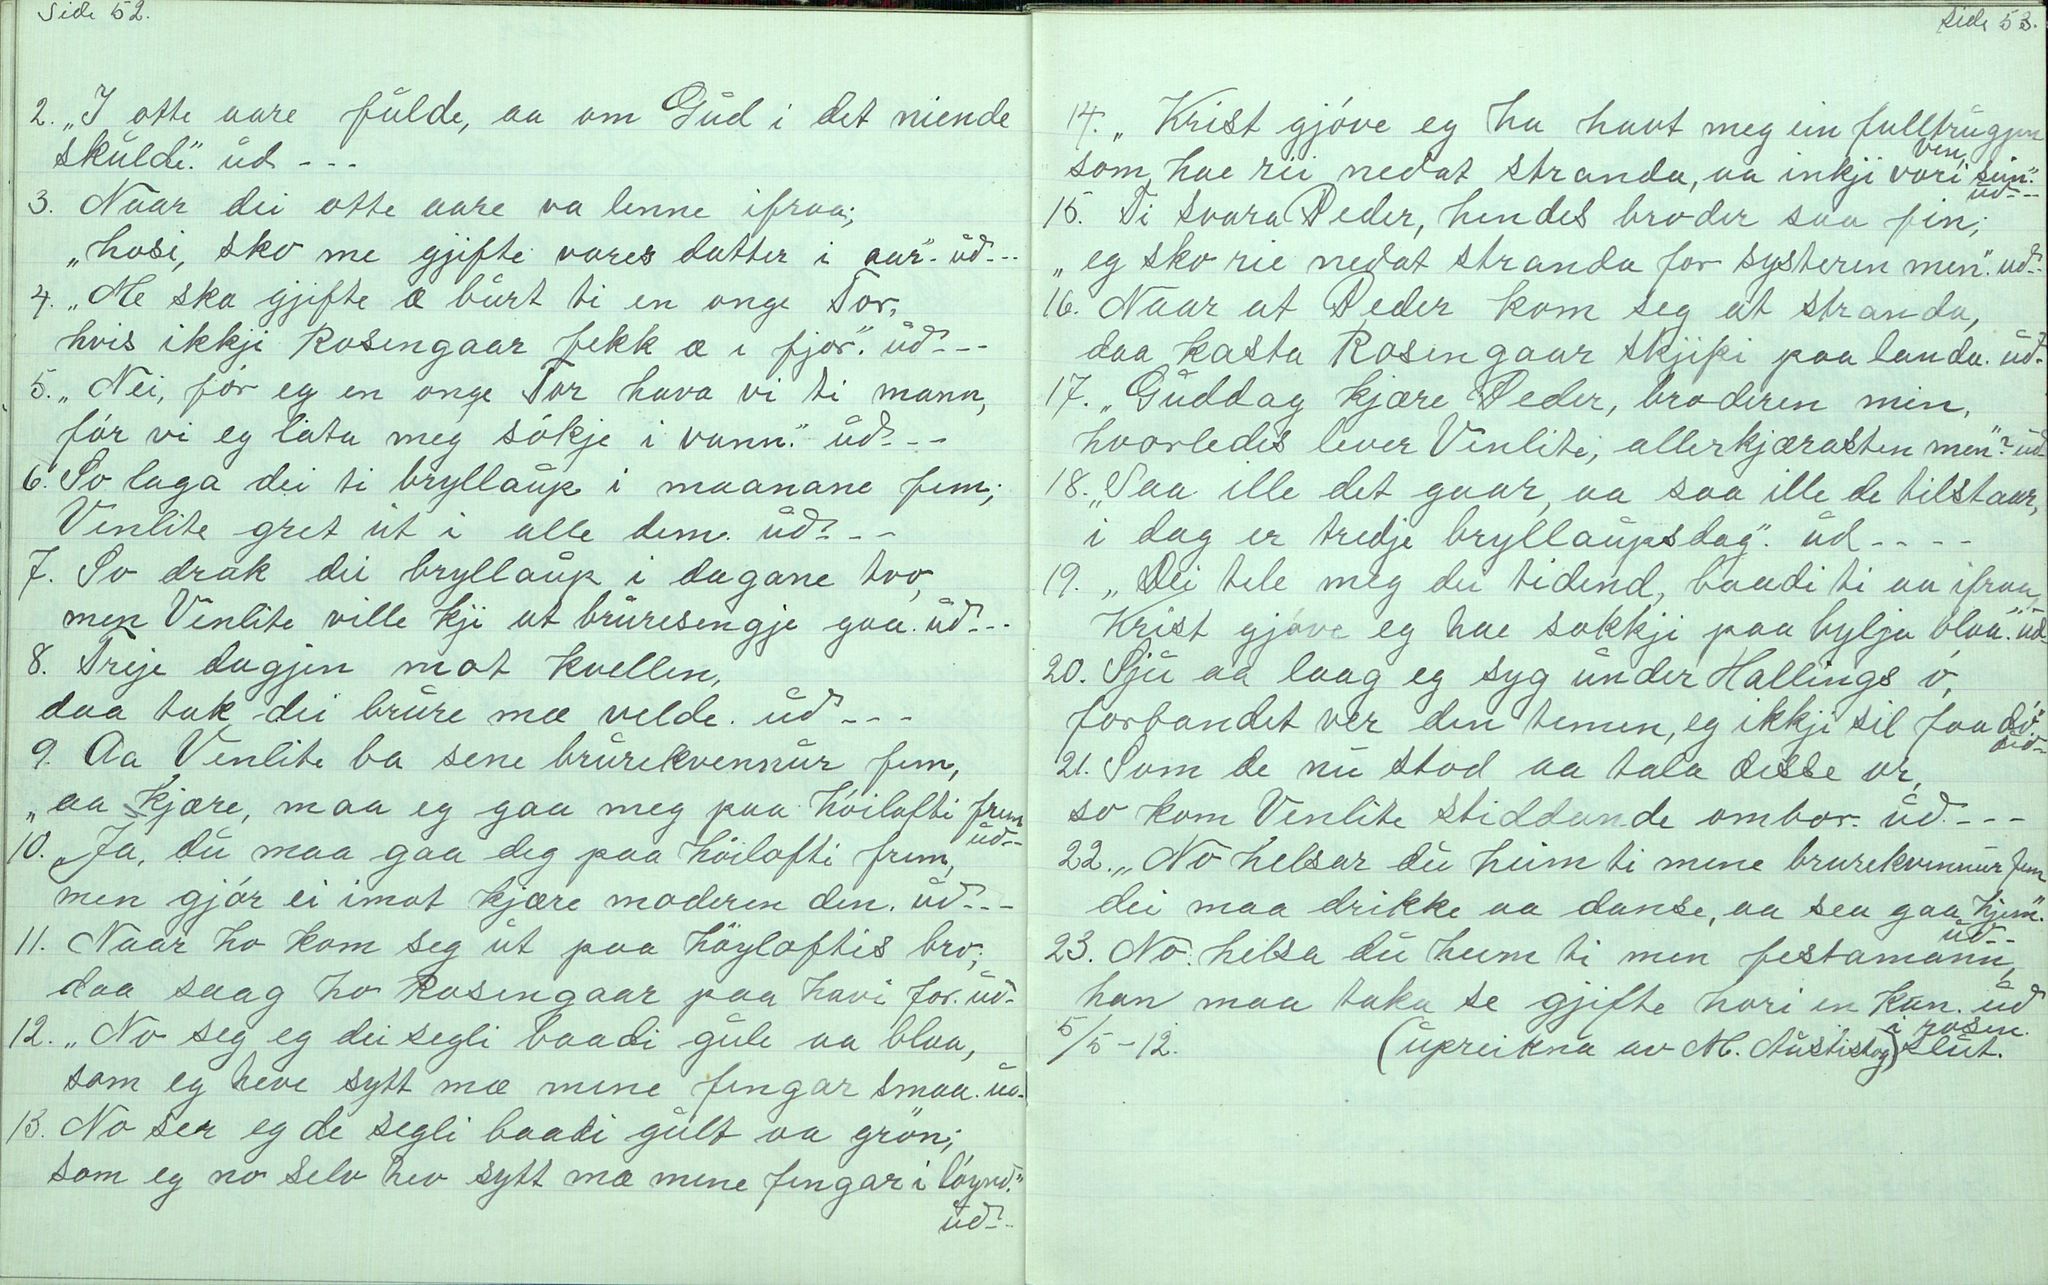 Side 52.
2. „I otte aare fulde, aa om Gud i det niende
skulde." ud ---
3. Naar dei otte aare va lenne ifraa;
„hosi, sko me gjifte vores datter i aar". ud---
4. „Me ska gjifte æ burt ti en onge Tor,
hvis ikkji Rosengaar fekk æ i fjor". ud---
5. „Nei, fór eg en onge Tor hava vi ti mann,
fór vi eg lata meg sökje i vann." ud---
6. So laga dei ti bryllaup i maanane fem;
Venlite gret ut i alle dem. ud---
7. So drak dei bryllaup i dagane tvo,
men Venlite ville kji at bruresengje gaa. ud---
8. Treje dagjen mot kvellen,
daa tok dei brure mæ velde. ud---
9. Aa Venlite ba sene brurekvennur fem,
„aa kjære, maa eg gaa meg paa höilofti frem
ud--
10. „Ja, du maa gaa deg paa höilofti frem,
men gjór ei imot kjære moderen den. ud---
11. Naar ho kom seg ut paa höyloftis bro;
daa saag ho Rosengaar paa havi for. ud-
12. „No seg eg dei segli baadi gule aa blaa,
som eg heve sytt mæ mine fingar smaa. ud-
13. No ser eg de segli baadi gult aa grön;
som eg no selv hev sytt mæ mine fingar i löynd."
ud--
Side 53.
14. „Krist gjóve eg ha havt meg ein fulltrugjen
ven,
som hae rii nedat stranda, aa inkji vori sein."
ud--
15. Ti svara Peder, hendes broder saa fin;
„eg sko rie nedat stranda for systeren men". ud--
16. Naar at Peder kom seg at stranda,
daa kasta Rosengaar skjipi paa landa. ud-
17. „Guddag kjære Peder, broderen min,
hvorledes lever Venlite, allerkjærasten men"? ud-
18. „Saa ille det gaar, aa saa ille de tilstaar,
i dag er tredje bryllaupsdag". ud----
19. „Dei tele meg dei tidend, baadi ti aa ifraa,
Krist gjóve eg hae sokkji paa bylja blaa." ud-
20. Sju aa laag eg syg under Hallings ö,
forbandet ver den temen, eg ikkji sil faa dö".
ud-
21. Som de nu stod aa tala disse or,
so kom Venlite stiddande ombor. ud---
22. „No helsar du heim ti mine brurekvennur fem
dei maa drikke aa danse, aa sea gaa hjem".
ud--
23. No helsa du heim ti men festamann,
han maa taka se gjifte hori en kan. ud
i rosen.
5/5-12. (upreikna av M. Austistog) Slut.